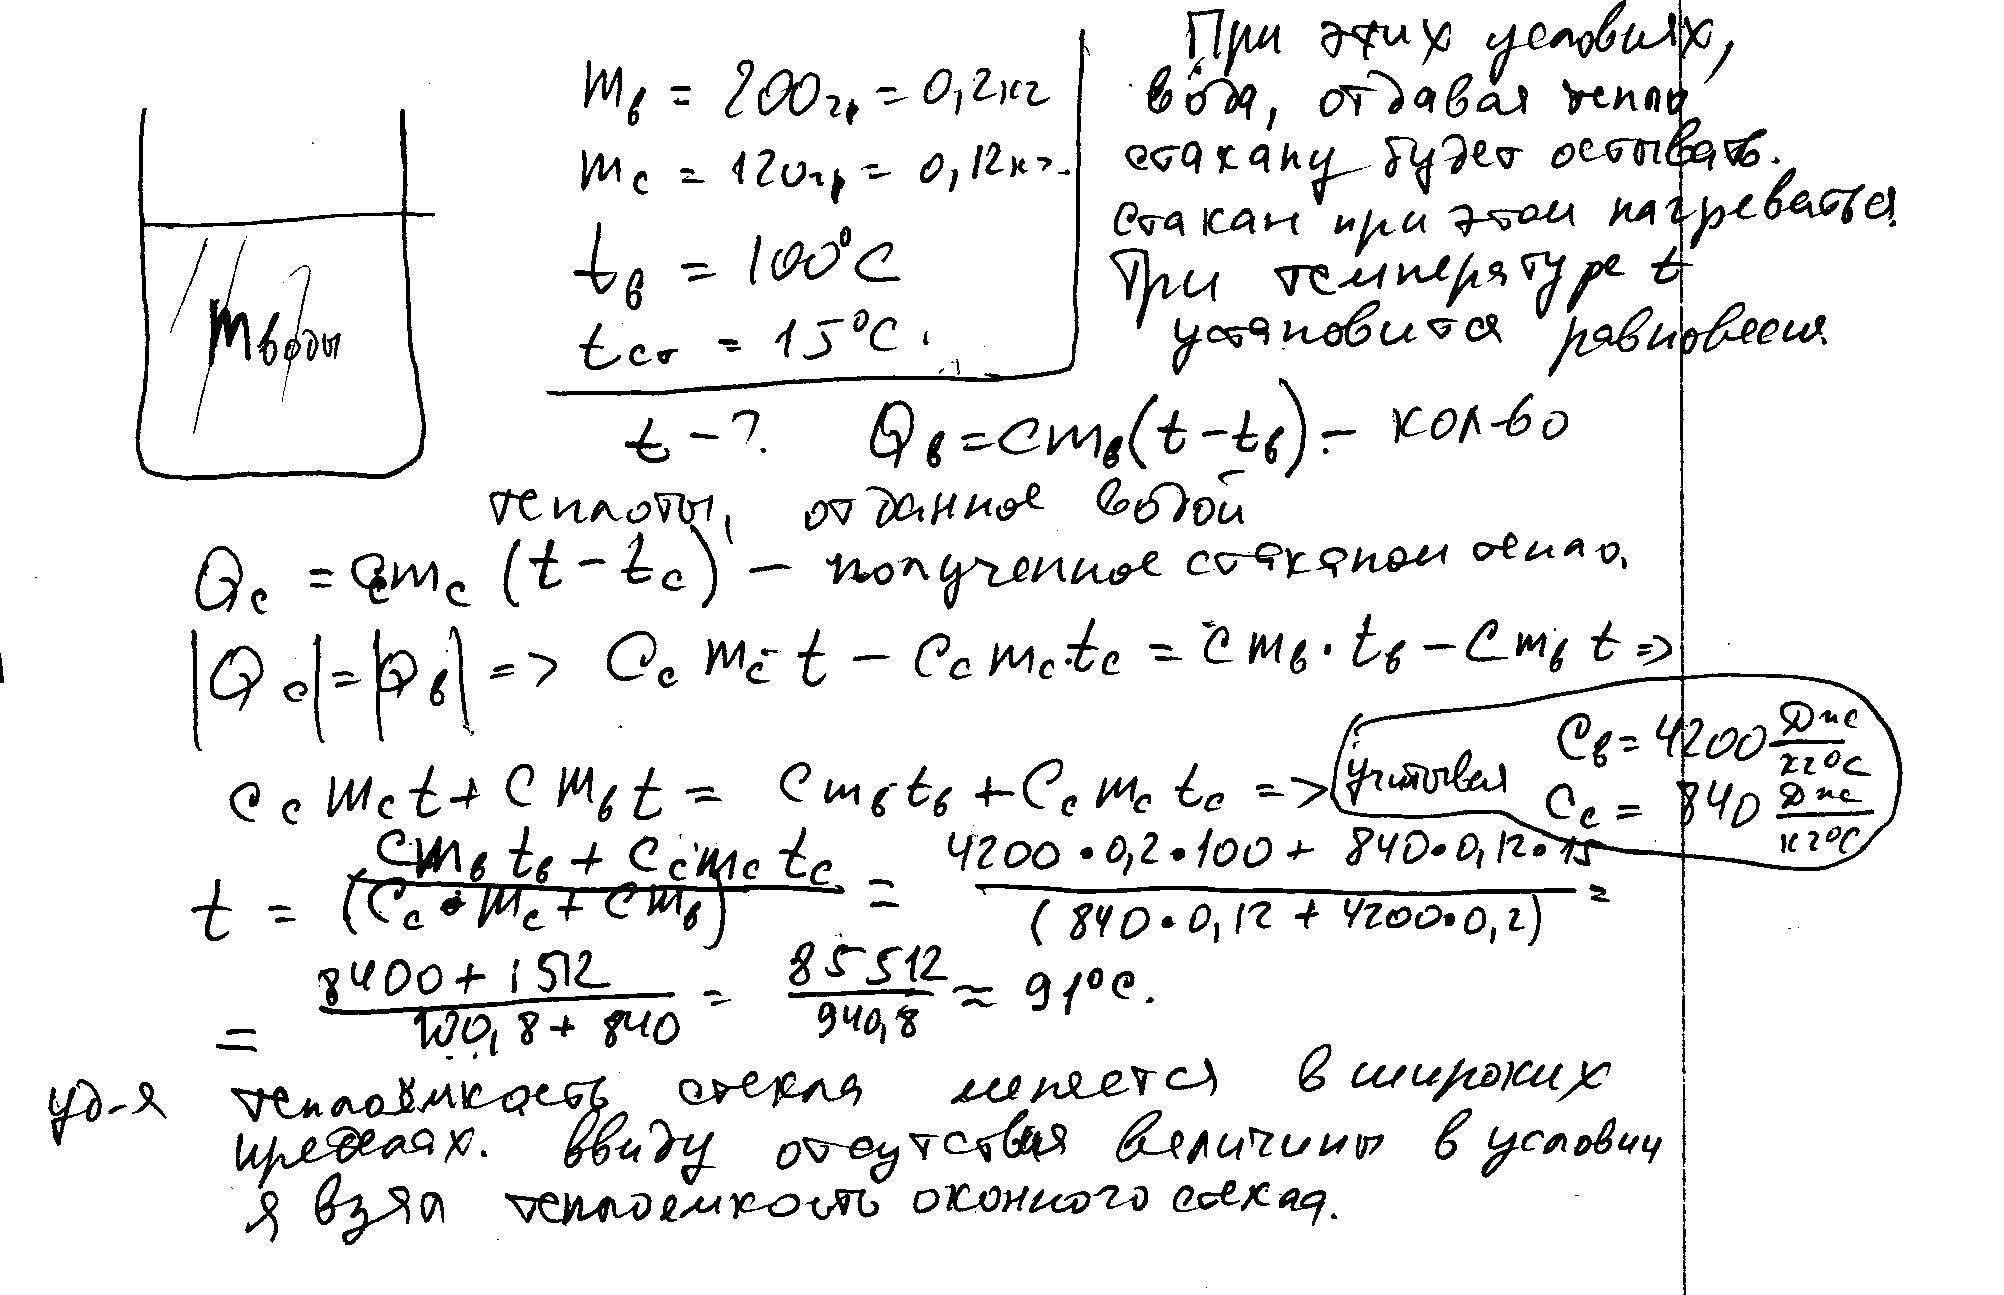 mводы
mв = 200гр = 0,2кг
mс = 120гр = 0,12кг.
tв = 100°C
tст = 15°C.
t - ?
При этих условиях,
вода, отдавая тепло
стакану будет остывать.
стакан при этом нагреваться.
При температуре t
установится равновесия.
Qв = cmв(t - tв) - кол-во
теплоты, отданное водой
Qс = cсmс (t - tс) - полученное стаканом тепло.
|Qс| = |Qв| => Cс mс t - Cс mс·tс = cmв·tв - Cmв t =>
cс mсt + c mвt = cmвtв + Cс mс tс => учитывая
Cв = 4200 Дж/кг°C
Cс = 840 Дж/кг°C
t = (cmв tв + Cс mс tс)/(Cс·mс + cmв) = (4200·0,2·100 + 840·0,12·15)/(840·0,12 + 4200·0,2) =
= (8400 + 1512)/(100,8 + 840) = 85512/940,8 ≈ 91°C.
уд-я теплоёмкость стекла меняется в широких
пределах. Ввиду отсутствия величины в условии
я взял теплоемкость оконного стекла.